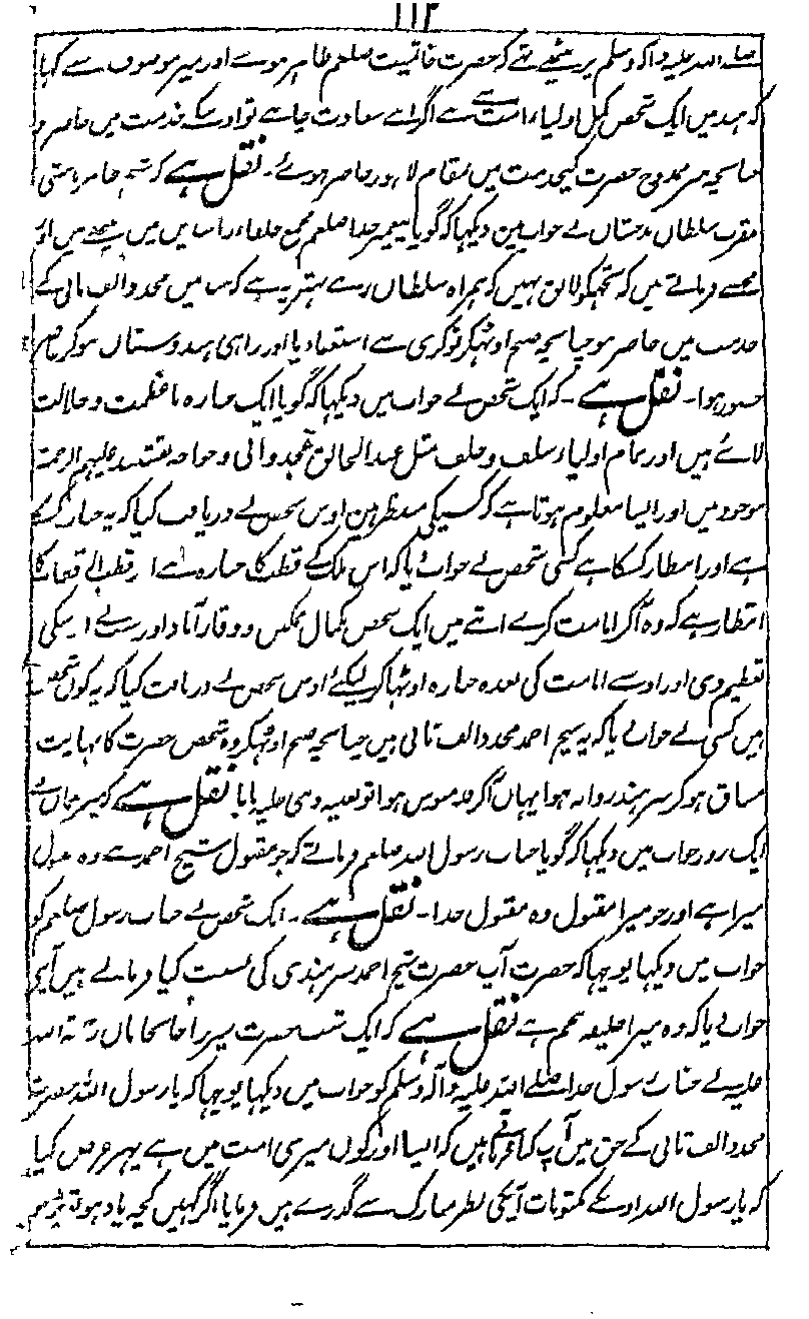 ۱۱۲
صلے اللہ علیہ وآلہ وسلم پر بیٹھے تھے کہ حضرت خاتمیت صلعم ظاہر ہوے اور میر موصوف سے کہا
کہ ہند میں ایک شخص کمل اولیاء امت سے ہے اگر اے سعادت چاہے تو اوسکے خدمت میں حاضر ہو
چنانچہ میر ممدوح حضرت کیخدمت میں بمقام لاہور حاضر ہوئے۔ نقل ہے کہ
مقرب سلطان بدخشاں نے خواب مین دیکہا کہ گویا پیغمبر خدا صلعم مجمع خلفاء راشدین میں بیٹھے ہیں اور
مجھسے فرماتے ہیں کہ تجھکو لائق نہیں کہ ہمراہ سلطان رہے بہتر یہ ہے کہ ہند میں مجدد الف ثانی کے
خدمت میں حاضر ہو چنانچہ صبح اوٹھکر نوکری سے استعفا دیا اور راہی ہندوستاں ہو کر حاضر
حضور ہوا۔ نقل ہے۔ کہ ایک شخص نے خواب میں دیکہا کہ گویا ایک جنازہ با عظمت و جلالت
لائے ہیں اور تمام اولیاء سلف و خلف مثل عبد الخالق غجدوانی و خواجہ نقشبند علیہم الرحمۃ
موجود ہیں اور ایسا معلوم ہوتا ہے کہ کسیکی منتظر ہین اوس شخص نے دریافت کیا کہ یہ جنازہ کسکا
ہے اور انتظار کسکا ہے کسی شخص نے جواب دیا کہ اس ملک کے قطب کا جنازہ ہے اور قطب الاقطاب کا
انتظار ہے کہ وہ آکر امامت کرے اتنے میں ایک شخص بکمال تمکیں و وقار آیا اور سب نے اوسکی
تعظیم دی اور اوسے امامت کی بعدہ جنازہ اوٹہا کر لیگئے اوس شخص نے دریافت کیا کہ یہ کون شخص
ہیں کسی نے جواب دیا کہ یہ شیخ احمد مجدد الف ثانی ہیں چنانچہ صبح اوٹھکر وہ شخص حضرت کا نہایت
مشتاق ہو کر سرہند روانہ ہوا یہاں آکر قدمبوس ہوا تو بعینہ وہی حلیہ پایا نقل ہے کہ
ایک روز خواب میں دیکہا کہ گویا جناب رسول اللہ صلعم فرماتے کہ جو مقبول شیخ احمد ہے وہ مقبول
میرا ہے اور جو میرا مقبول وہ مقبول خدا۔ نقل ہے۔ ایک شخص نے جناب رسول صلعم کو
خواب میں دیکہا پوچہا کہ حضرت آپ حضرت شیخ احمد سرہندی کی نسبت کیا فرماتے ہیں آپنے
جواب دیا کہ وہ میرا خلیفہ ہے نقل ہے کہ ایک شب حضرت میرزا جانجاناں رحمۃ اللہ
علیہ نے جناب رسول خدا صلے اللہ علیہ وآلہ وسلم کو خواب میں دیکہا پوچہا کہ یا رسول اللہ حضرت
مجدد الف ثانی کے حق میں آپ کیا فرماتے ہیں کہ ایسا اور کون میری امت میں ہے پہر عرض کیا
کہ یا رسول اللہ اونکے مکتوبات آپکی نظر مبارک سے گذرے ہیں فرمایا اگر کہیں کچہ یاد ہو تو